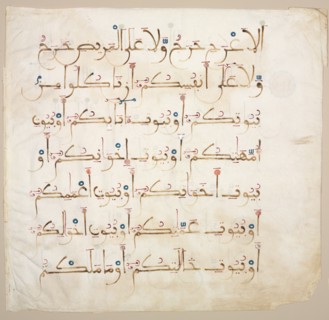 الأعرج حرج ولا على المريض حرج
ولا على أنفسكم أن تأكلوا من
بيوتكم أو بيوت ءابائكم أو بيوت
أمهتكم أو بيوت إخونكم أو
بيوت أخوتكم أو بيوت أعممكم
أو بيوت عمتكم أو بيوت أخولكم
أو بيوت خلتكم أو ما ملكتم